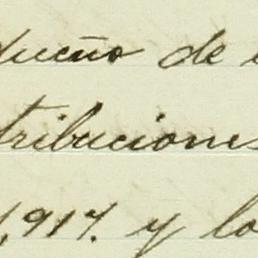 dueño de
tribuciones
1,917. y lo